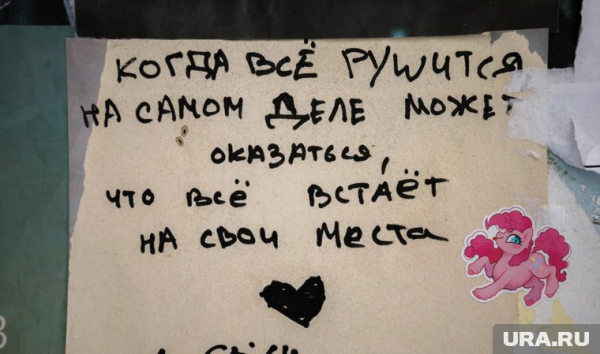 КОГДА ВСЁ РУШИТСЯ
НА САМОМ ДЕЛЕ МОЖЕТ
ОКАЗАТЬСЯ,
ЧТО ВСЁ ВСТАЁТ
НА СВОИ МЕСТА
URA.RU